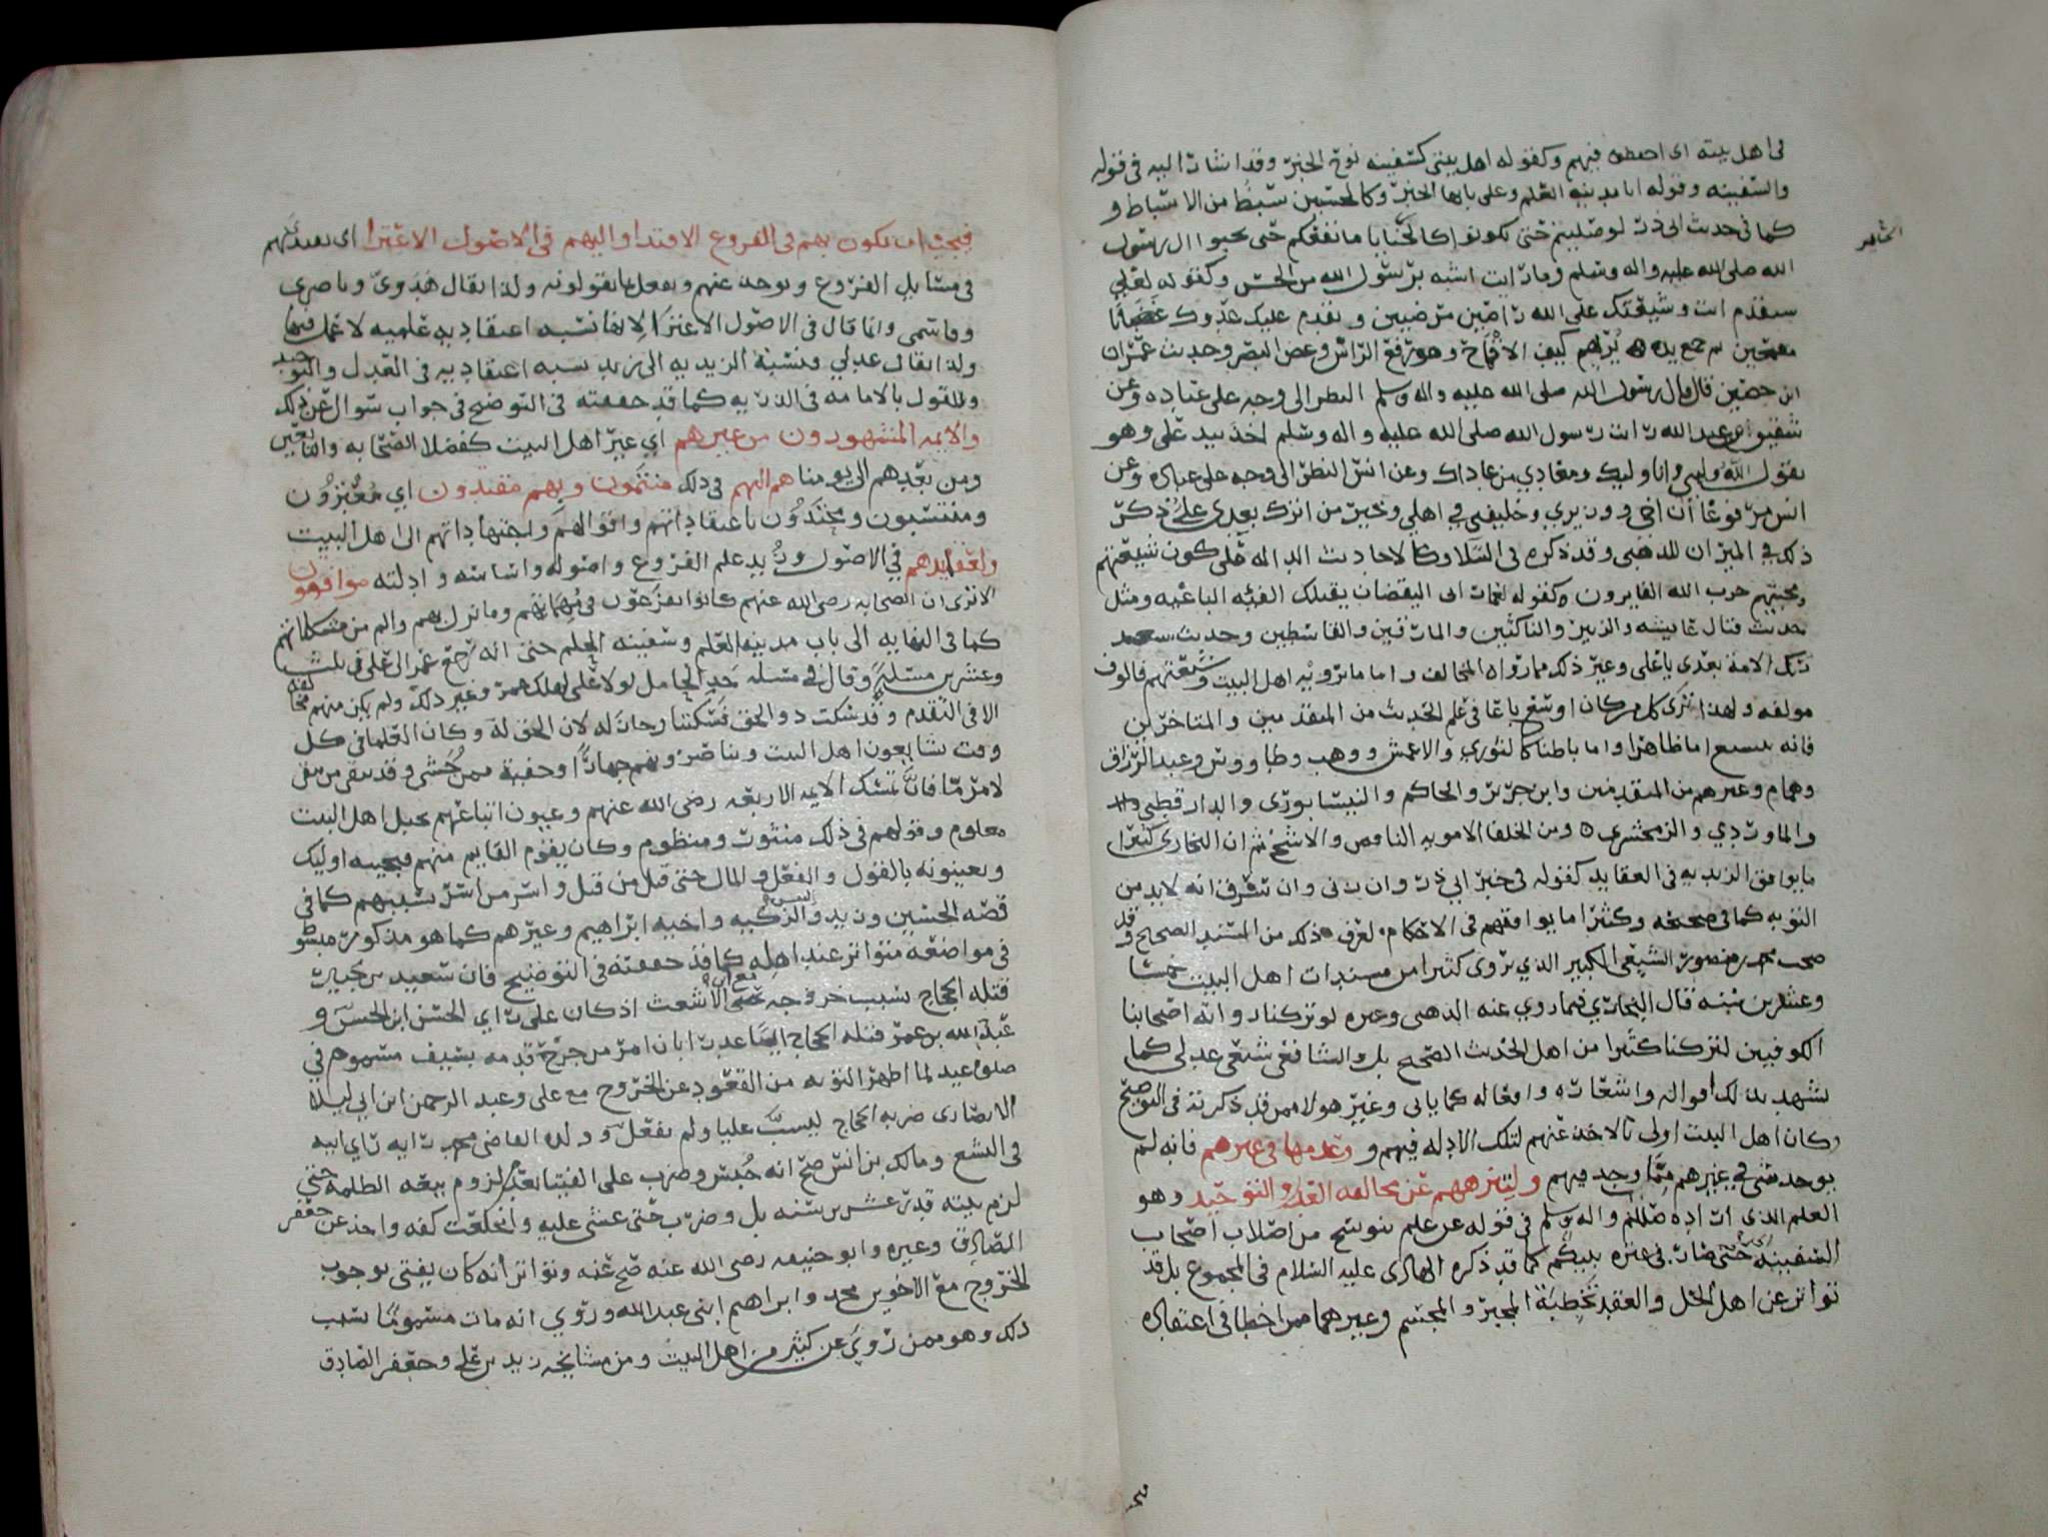 في اهل بيته اي احفظوه فيهم وكقوله اهل بيتي كسفينه نوح الخبر وقد اشار اليه في قوله
والسفينه وقوله انا مدينه العلم وعلى بابها الخبر وكالحسين سبط من الاسباط و
كما في حديث ابي ذر لو صليتم حتى تكونوا كالحنايا ما نفعكم حتى تحبوا ال رسول
الله صلى الله عليه واله وسلم وما رايت اشبه برسول الله من الحسن وكقوله لعلي
ستقدم انت وشيعتك على الله راضين مرضيين ويقدم عليك عدوك غضابا
مقمحين ثم جمع يده يريهم كيف الاقماح وهو رفع الراس وغض البصر وحديث عمران
ابن حصين قال قال رسول الله صلى الله عليه واله وسلم النظر الى وجه علي عباده وعن
شقيق عن عبد الله رايت رسول الله صلى الله عليه واله وسلم اخذ بيد علي وهو
يقول الله وليي وانا وليك ومعادي من عاداك وعن انس النظر الى وجه علي عباده وعن
انس مرفوعا ان اخي ووزيري وخليفتي في اهلي وخير من اترك بعدي علي ذكر
ذلك في الميزان للذهبي وقد ذكره في النبلا وكالاحاديث الداله على كون شيعتهم
ومحبتهم حزب الله الفايزون وكقوله لعمار ابي اليقضان يقتلك الفئه الباغيه ومثل
حديث قتال عايشه والزبير والناكثين والمارقين والقاسطين وحديث ستغدر
بك الامه بعدي يا علي وغير ذلك مما رواه المخالف واما ما ترويه اهل البيت وشيعتهم فالوف
مولفه ولهذا ترى كل من كان اوسع باعا في علم الحديث من المتقدمين والمتاخرين
فانه يتشيع اما ظاهرا واما باطنا كالثوري والاعمش ووهب وطاووس وعبد الرزاق
وهمام وغيرهم من المتقدمين وابن جرير والحاكم والنيسابوري والدارقطني
والماوردي والزمخشري ومن الخلفا الامويه الناقص والاشج ثم ان البخاري كثيرا
ما يوافق الزيديه في العقايد كقوله في خبر ابي ذر وان زنى وان سرق انه لا بد من
التوبه كما في صحيحه وكثيرا ما يوافقهم في الاحكام يعرف ذلك من المسند الصحيح وقد
صحب محمد بن منصور الشيعي الكبير الذي يروى كثيرا من مسندات اهل البيت خمسا
وعشرين سنه قال البخاري فيما روي عنه الذهبي وغيره لو تركنا رواية اصحابنا
الكوفيين لتركنا كثيرا من اهل الحديث الصحيح بل والشافعي شيعي عدلي كما
يشهد بذلك اقواله واشعاره وافعاله كما ياتي وغير هولا ممن قد ذكرته في التوضيح
وكان اهل البيت اولى بالاخذ عنهم لتلك الادله فيهم و وعدمها في غيرهم فانه لم
يوجد شي في غيرهم مما وجد فيهم ولتنزههم عن مخالفه العدل والتوحيد وهو
العلم الذي اراده صللم واله وسلم في قوله عن علم نوسخ من اصلاب اصحاب
السفينه حتى صار في عتره نبيكم كما قد ذكره الهادي عليه السلام في المجموع بل قد
تواتر عن اهل الحل والعقد تخطية المجبر والمجسم وغيرهما ممن اخطا في اعتقاده
الخامس
فيجب ان يكون بهم في الفروع الاقتدا واليهم في الاصول الاعتزا اي يقلدهم
في مسايل الفروع ويوخذ عنهم ويعمل بما يقولونه ولذا يقال هدوي وناصري
وقاسمي وانما قال في الاصول الاعتزا لانها نسبه اعتقاديه علميه لا عمل فيها
ولذا يقال عدلي ونسبة الزيديه الى زيد نسبه اعتقاديه في العدل والتوحيد
وللقول بالامامه في الذريه كما قد حققته في التوضيح في جواب سوال عن ذلك
والايمه المشهورون من غيرهم اي غير اهل البيت كفضلا الصحابه والتابعين
ومن بعدهم الى يومنا هم اليهم في ذلك منتمون وبهم مقتدون اي معتزون
ومنتسبون ومحتذون باعتقاداتهم واقوالهم واجتهاداتهم الى اهل البيت
ولعقايدهم في الاصول وزبد علم الفروع واصوله واساسه وادلته موافقون
الا ترى ان الصحابه رضي الله عنهم كانوا يفزعون في مهماتهم وما نزل بهم والم من مشكلاتهم
كما في النهايه الى باب مدينه العلم وسفينه العلم حتى انه رجع عمر الى علي في ثلث
وعشرين مسئلة وقال في مسئله حد الحامل لولا علي لهلك عمر وغير ذلك ولم يكن منهم مخالفه
الا في التقدم وقد سكت ذو الحق فسكتنا رجاله لان الحق له وكان العلما في كل
وقت يشايعون اهل البيت ويناصرونهم جهارا وخفية ممن يخشى وقد بقي من بقي
لامر ما فان تمسك الايمه الاربعه رضي الله عنهم وعيون اتباعهم بحبل اهل البيت
معلوم وقولهم في ذلك منثور ومنظوم وكان يقوم القايم منهم فيجيبه اوليك
ويعينونه بالقول والفعل والمال حتى قتل من قتل واسر من اسر بسببهم كما في
قصه الحسين وزيد والنفس الزكيه واخيه ابراهيم وغيرهم كما هو مذكور مبسوط
في مواضعه متواتر عند اهله كما قد حققته في التوضيح فان سعيد بن جبير
قتله الحجاج بسبب خروجه مع ابن الاشعث اذ كان على راي الحسن ابن الحسن و
عبد الله بن عمر قتله الحجاج ايضا عدرا بان امر من جرح قدمه بسيف مسموم في
صلوة عيد لما اظهر التوبه من القعود عن الخروج مع علي وعبد الرحمن ابن ابي ليلا
الانصاري ضربه الحجاج ليسب عليا ولم يفعل وولده القاضي محمد رايه راي ابيه
في التشيع ومالك بن انس صح انه حبس وضرب على الفتيا بعدم لزوم بيعه الظلمه حتى
لزم بيته قدر عشرين سنه بل وضرب حتى غشي عليه وانخلعت كفه واخذ عن جعفر
الصادق وغيره وابو حنيفه رضي الله عنه صح عنه وتواتر انه كان يفتي بوجوب
الخروج مع الاخوين محمد وابراهيم ابني عبد الله وروي انه مات مسموما بسبب
ذلك وهو ممن روى عن كثير من اهل البيت ومن مشايخه زيد بن علي وجعفر الصادق